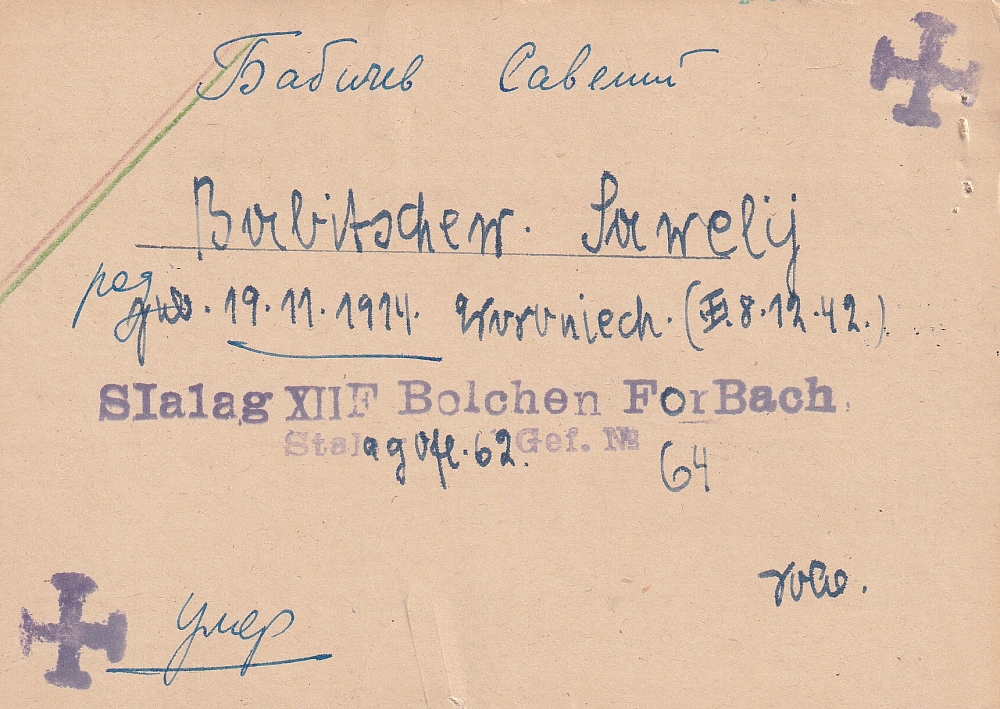 Бабичев Савелий
Babitschew. Sawelij
род
geb. 19.11.1914. Woroniech. (8.12.42.)
SIalag XIIF Bolchen ForBach
Stalag Gef. №
62. 64
умер